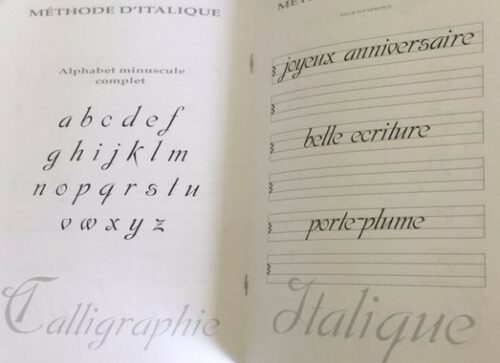 MÉTHODE D'ITALIQUE
Alphabet minuscule
complet
a b c d e f
g h i j k l m
n o p q r s t u
v w x y z
Calligraphie
joyeux anniversaire
belle ecriture
porte-plume
Italique